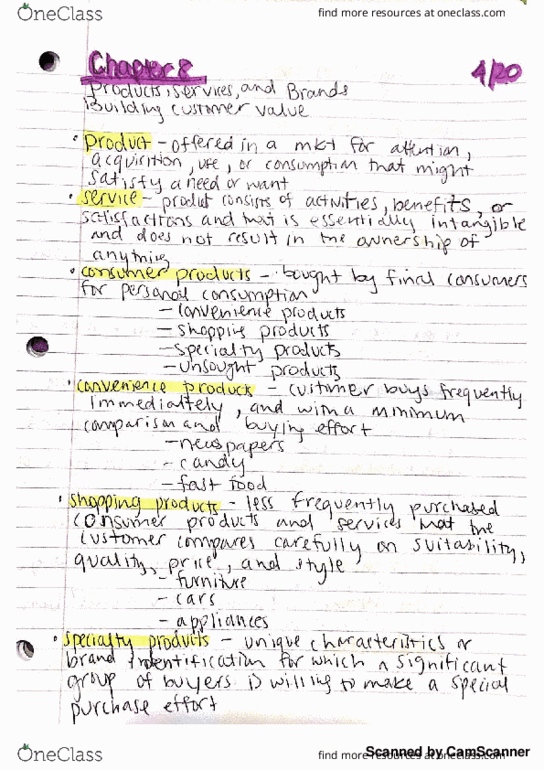 OneClass
find more resources at oneclass.com
Chapter 8
4/20
Products, services, and Brands
Building customer value
• product - offered in a mkt for attention,
acquisition, use, or consumption that might
satisfy a need or want
• service - product consists of activities, benefits, or
satisfactions and that is essentially intangible
and does not result in the ownership of
anything
• consumer products - bought by final consumers
for personal consumption
- convenience products
- shopping products
- specialty products
- unsought products
• convenience products - customer buys frequently
immediately, and with a minimum
comparison and buying effort
- newspapers
- candy
- fast food
• shopping products - less frequently purchased
consumer products and services that the
customer compares carefully on suitability,
quality, price, and style
- furniture
- cars
- appliances
• specialty products - unique characteristics or
brand indentification for which a significant
group of buyers is willing to make a special
purchase effort
OneClass
find more resources at oneclass.com
Scanned by CamScanner